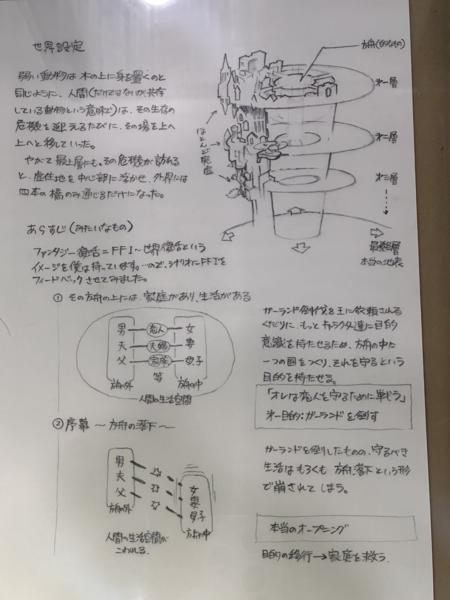 世界設定
弱い動物が木の上に身を置くのと
同じように、人間(だけではないが共存
している動物という意味で)は、その生存の
危機を迎えるたびに、その場を上へ
上へと移していった。
やがて最上層にも、その危機が訪れる
と、居住地を中心部に浮かせ、外界には
四本の橋のみ通じるだけになった。
方舟
オ一層
オ二層
オ三層
ほとんど廃虚
最終層
本当の地表
あらすじ(みたいなもの)
ファンタジー復活=FFI〜世界復活という
イメージを僕は持っています。…ので、シナリオにFFIを
フィードバックさせてみました。
① その方舟の上には家庭があり、生活がある
男 恋人 女
夫 夫婦 妻
父 家族 母子
等
方舟の外 方舟の中
人間の生活空間
ガーランド倒伐を王に依頼される
くだりに、もっとキャラクタ達に目的
意識を持たせるため、方舟の中に
一つの国をつくり、それを守るという
目的を持たせる。
「オレは恋人を守るために戦どう」
オ一目的:ガーランドを倒す
② 序幕 〜方舟の落下〜
男
夫
父
方舟の外
女
妻
母子
方舟の中
人間の生活空間が
こわれる。
ガーランドを倒したものの、守るべき
生活はもろくも方舟落下という形
で崩されてしまう。
本当のオープニング
目的の移行→家庭を救う